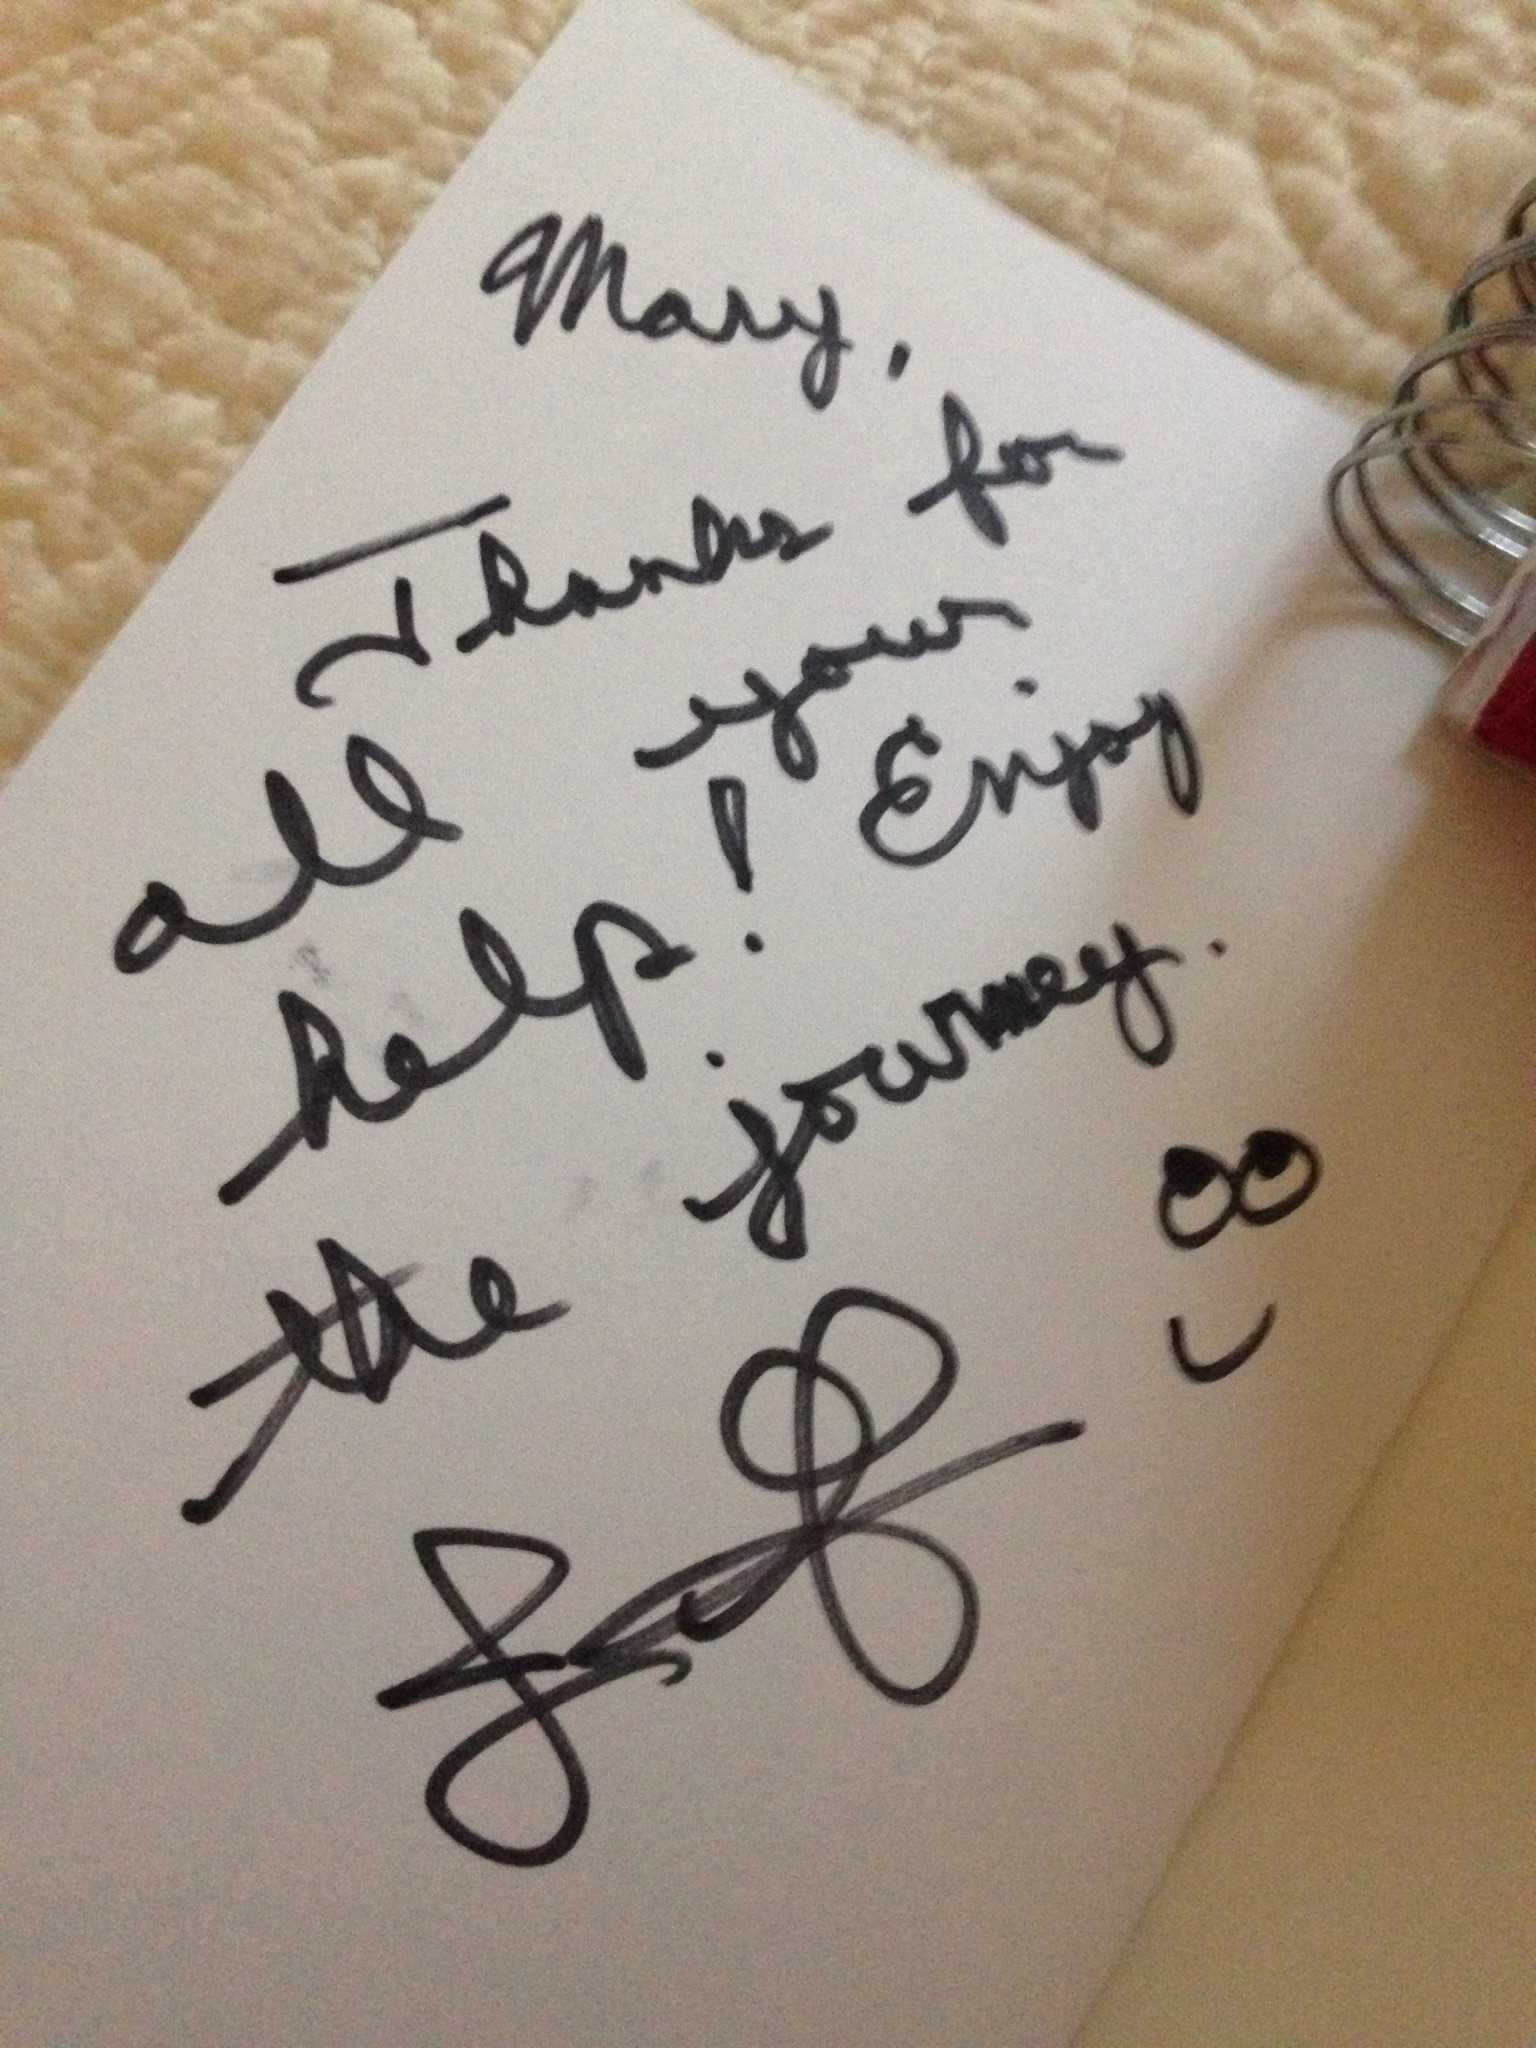 Mary,
Thanks for
all your
help! Enjoy
the journey.